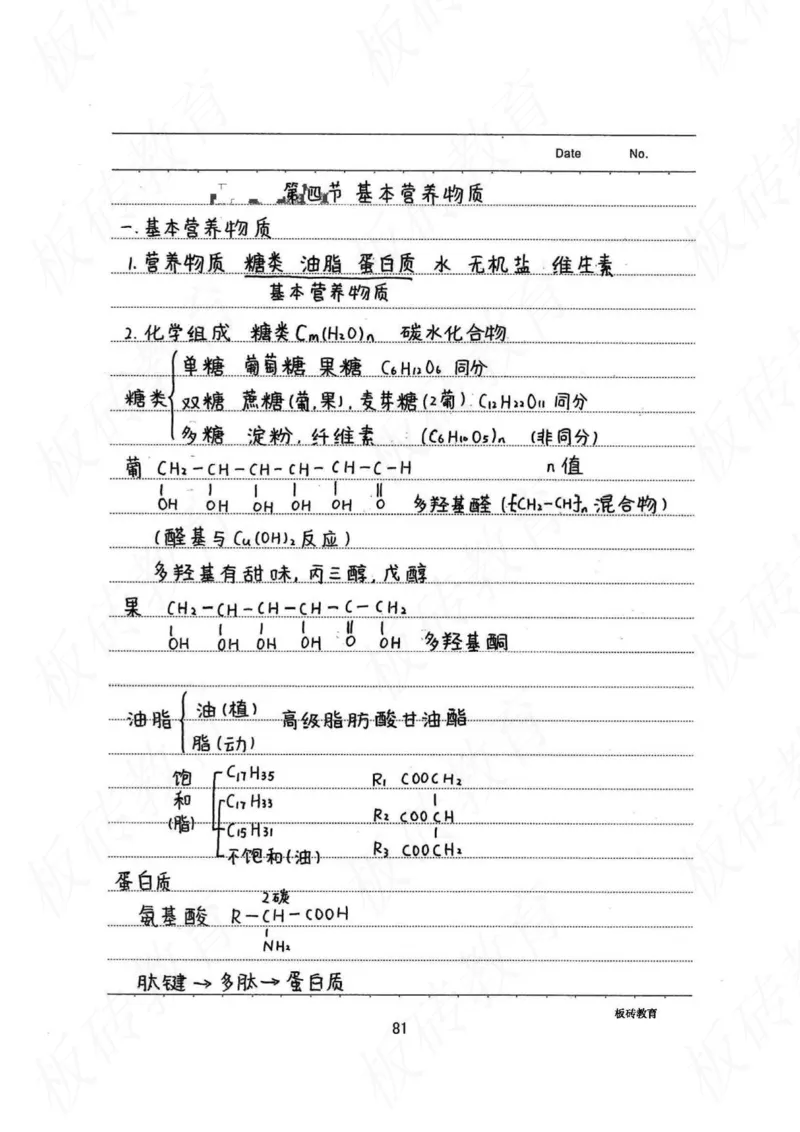 Date No.
第四节 基本营养物质
一.基本营养物质
1.营养物质 糖类 油脂 蛋白质 水 无机盐 维生素
基本营养物质
2.化学组成 糖类Cm(H2O)n 碳水化合物
单糖 葡萄糖 果糖 C6H12O6 同分
糖类 双糖 蔗糖(葡,果),麦芽糖(2葡).C12H22O11 同分
多糖 淀粉,纤维素 (C6H10O5)n (非同分)
葡 CH2-CH-CH-CH-CH-C-H n值
OH OH OH OH OH O 多羟基醛([CH2-CH]n混合物)
(醛基与Cu(OH)2反应)
多羟基有甜味,丙三醇,戊醇
果 CH2-CH-CH-CH-C-CH2
OH OH OH OH O OH 多羟基酮
油脂 油(植) 高级脂肪酸甘油酯
脂(动)
饱和(脂) C17H35 R1 COOCH2
C17H33
C15H31 R2 COOCH
不饱和(油) R3 COOCH2
蛋白质
2碳
氨基酸 R-CH-COOH
NH2
肽键→多肽→蛋白质
板砖教育
81